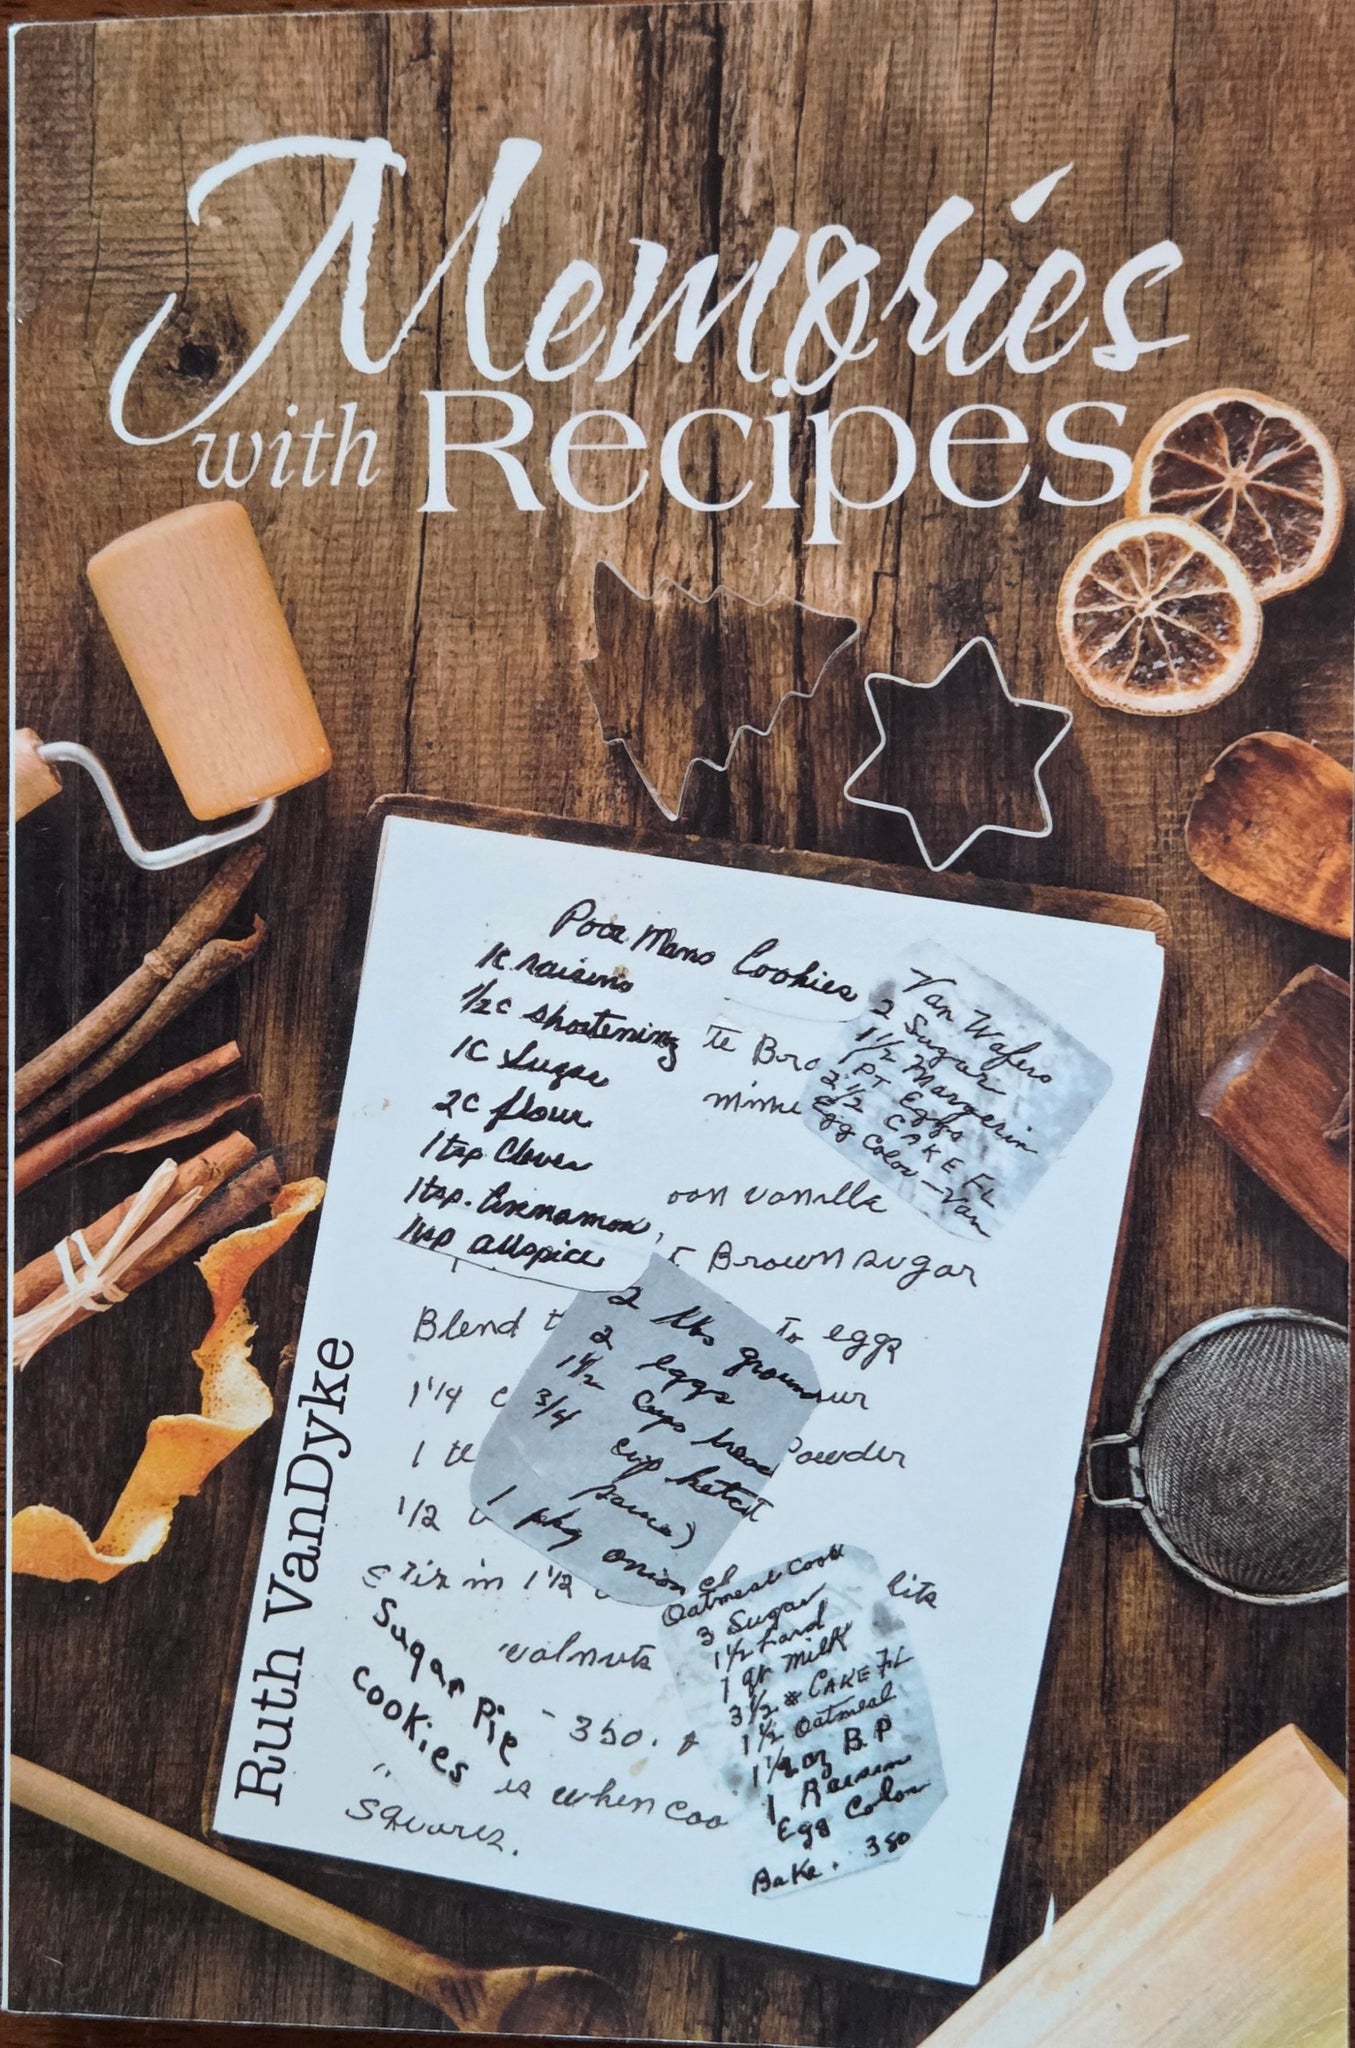 Memories
with Recipes
Ruth VanDyke
Poor Mans Cookies
1c raisins
1/2c shortening
1c Sugar
2c flour
1tsp Cloves
1tsp. Cinnamon
1tsp allspice
Van Wafers
2 Sugar
1 1/2 Margerin
1 PT Eggs
2 1/2 CAKE FL
Egg Color - Van
te Bro
vanilla
Brown sugar
Blend to eggs
1 1/4 c
1 te Powder
1/2
stir in 1 1/2
walnuts
350.
is when coo
squares.
2 lbs groun
2 eggs
1 1/2 cups brea
3/4 cup ketch
sauce)
1 pkg onion
Sugar Pie
Cookies
Oatmeal Cook
3 Sugar
1 1/2 Lard
1 qt Milk
3 1/2 # CAKE FL
1 1/2 Oatmeal
1 1/2 oz B P
1 Raisin
Egg Color
Bake. 350